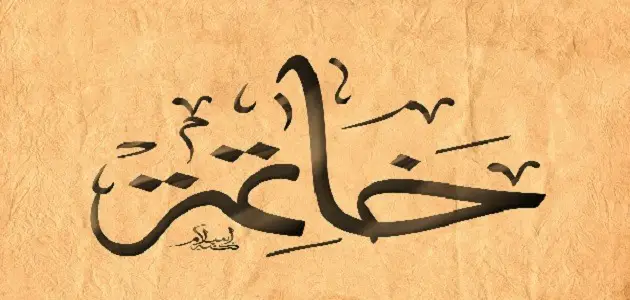 خَاتِمَة